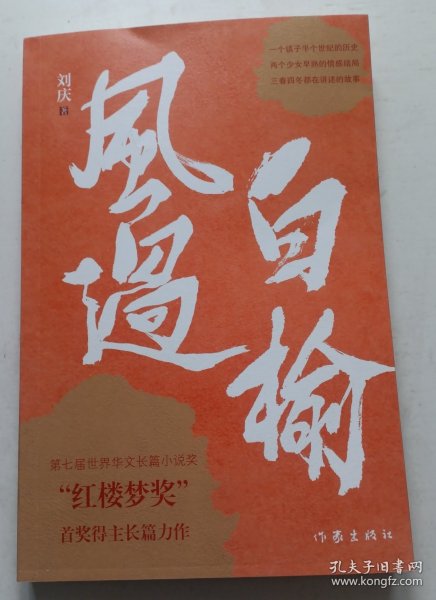 一个镇子半个世纪的历史
两个少女早熟的情感结局
三春四冬都在讲述的故事
刘庆 著
風過
白榆
第七届世界华文长篇小说奖
“红楼梦奖”
首奖得主长篇力作
作家出版社
孔夫子旧书网
www.kongfz.com